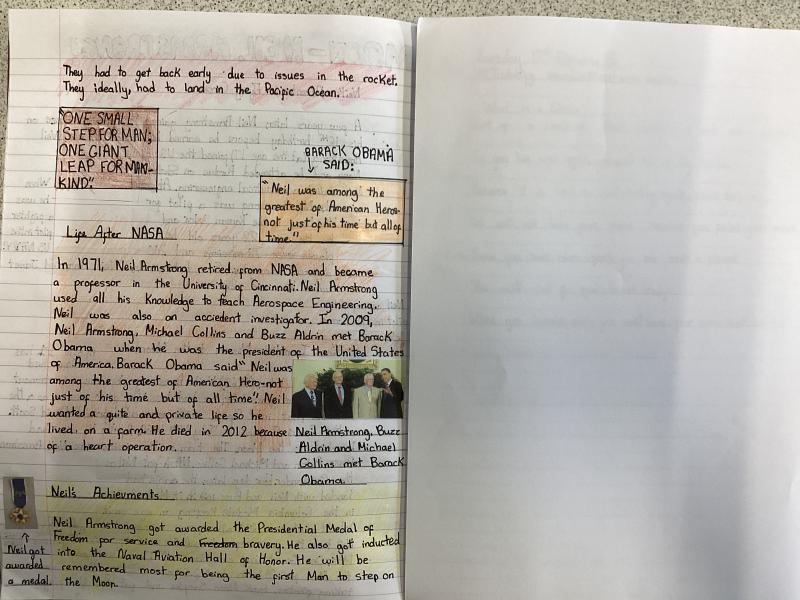 They had to get back early due to issues in the rocket.
They ideally, had to land in the Pacific Ocean.
"ONE SMALL
STEP FOR MAN;
ONE GIANT
LEAP FOR MAN-
KIND".
BARACK OBAMA
SAID:
"Neil was among the
greatest of American Hero-
not just of his time but all of
time."
Life After NASA
In 1971, Neil Armstrong retired from NASA and became
a professor in the University of Cincinnati. Neil Armstrong
used all his knowledge to teach Aerospace Engineering.
Neil was also an accident investigator. In 2009,
Neil Armstrong, Michael Collins and Buzz Aldrin met Barack
Obama when he was the president of the United States
of America. Barack Obama said "Neil was
among the greatest of American Hero-not
just of his time but of all time". Neil
wanted a quite and private life so he
lived on a farm. He died in 2012 because
of a heart operation.
Neil Armstrong, Buzz
Aldrin and Michael
Collins met Barack
Obama.
Neil's Achievments
Neil Armstrong got awarded the Presidential Medal of
Freedom for service and Freedom bravery. He also got inducted
into the Naval Aviation Hall of Honor. He will be
remembered most for being the first Man to step on
the Moon.
Neil got
awarded
a medal.